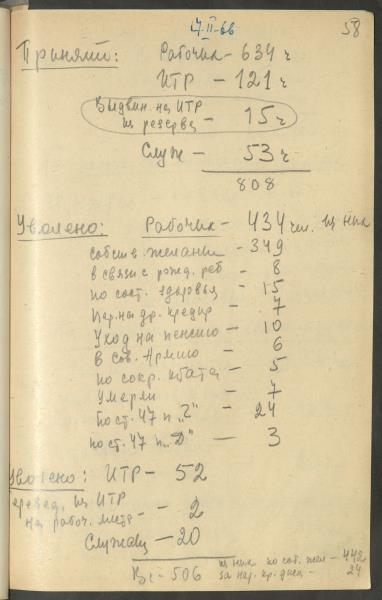 17-II-66
58
Принято: Рабочих - 634 ч
ИТР - 121 ч
Выдвин. на ИТР
из резерва - 15 ч
Служ - 53 ч
808
Уволено: Рабочих - 434 чел. из них
собств. желани - 349
в связи с рожд. реб - 8
по сост. здоровья - 15
Пер. на др. предпр - 7
Уход на пенсию - 10
в Сов. Армию - 6
по сокр. штата - 5
Умерли - 7
Пост. 47 п "Г" - 24
пост. 47 п. "Д" - 3
Уволено: ИТР - 52
перевед. из ИТР
на рабоч. места - 2
Служащ - 20
Вс - 506
из них по соб. жел - 442
за нар. тр. дисц - 24